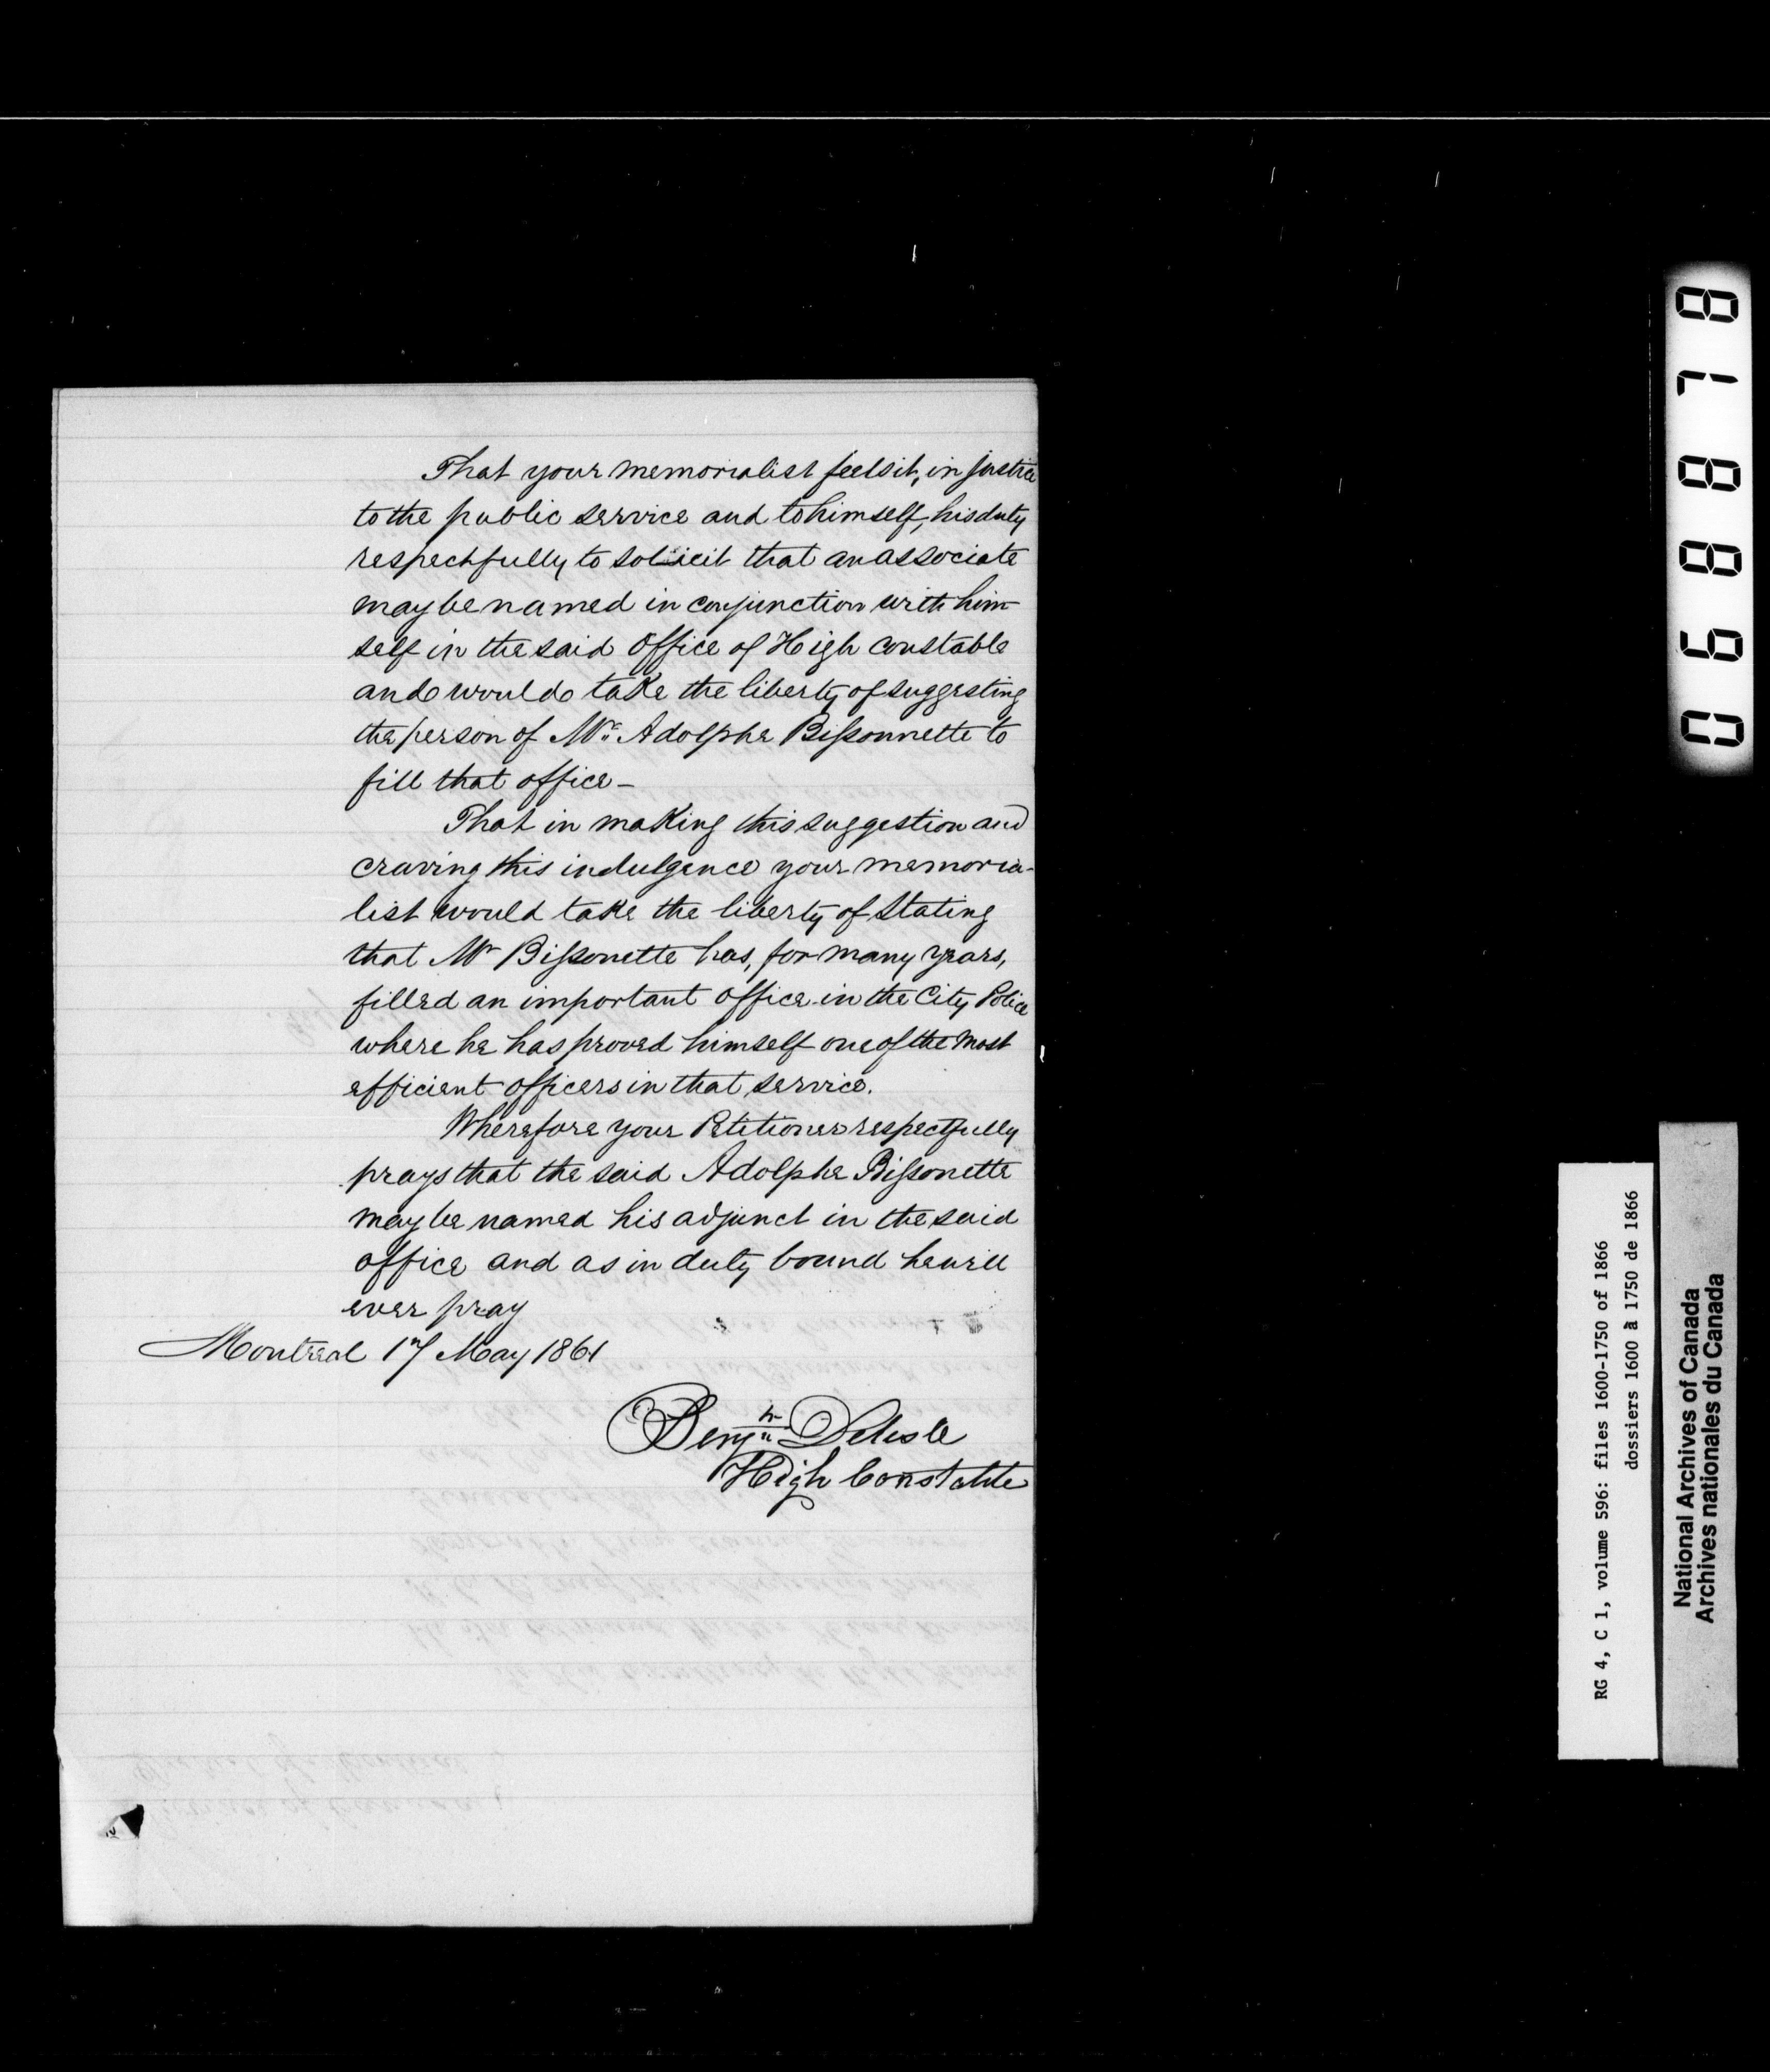 That your memorialist feels it, in justice
to the public service and to himself, his duty
respectfully to solicit that an associate
may be named in conjunction with him-
self in the said Office of High constable
and would take the liberty of suggesting
the person of Mr. Adolphe Bissonnette to
fill that office –
That in making this suggestion and
craving this indulgence your memoria-
list would take the liberty of Stating
that Mr Bissonette has, for many years,
filled an important office in the City Police
where he has proved himself one of the most
efficient officers in that service.
Wherefore your Petitioner respectfully
prays that the said Adolphe Bissonette
may be named his adjunct in the said
office and as in duty bound he will
ever pray
Montreal May 1861
Benjn Delisle
High Constable
068878
RG 4, C 1, volume 596: files 1600-1750 of 1866
dossiers 1600 à 1750 de 1866
National Archives of Canada
Archives nationales du Canada